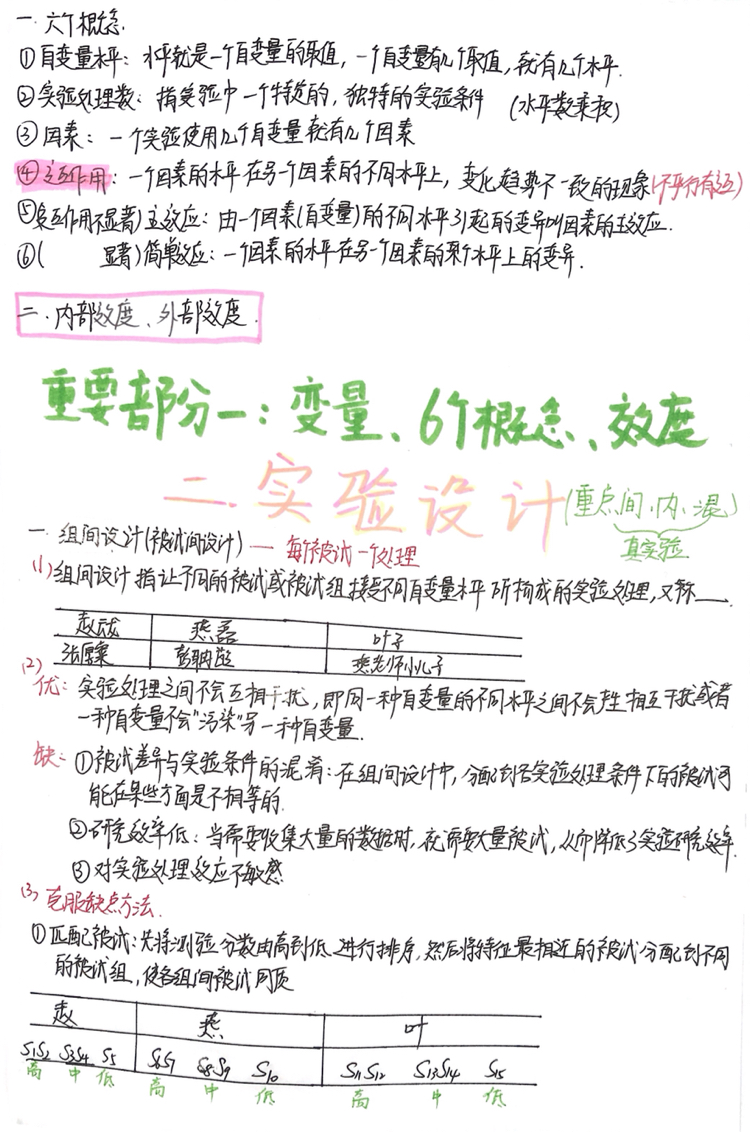 一. 六个概念.
①自变量水平：水平就是一个自变量的取值，一个自变量有几个取值，就有几个水平.
②实验处理数：指实验中一个特定的，独特的实验条件 (水平数乘积)
③因素：一个实验使用几个自变量就有几个因素
④交互作用：一个因素的水平在另一个因素的不同水平上，变化趋势不一致的现象(不平行有交互)
⑤(交互作用不显著)主效应：由一个因素(自变量)的不同水平引起的变异叫因素的主效应.
⑥( 显著)简单效应：一个因素的水平在另一个因素的某个水平上的变异.
二. 内部效度、外部效度.
重要部分一：变量、6个概念、效度
二.实验设计(重点间、内、混)
真实验
一. 组间设计(被试间设计) — 每个被试一个处理
(1)组间设计指让不同的被试或被试组接受不同自变量水平所构成的实验处理，又称——.
燕磊 叶子
燕老师小儿子
(2)
优：实验处理之间不会互相干扰，即同一种自变量的不同水平之间不会产生相互干扰或者
一种自变量不会"污染"另一种自变量.
缺：①被试差异与实验条件的混淆：在组间设计中，分配到各实验处理条件下的被试可
能在某些方面是不相等的.
②研究效率低：当需要收集大量的数据时，就需要大量被试，从而降低了实验研究效率.
③对实验处理效应不敏感
(3)克服缺点方法.
①匹配被试：先将测验分数由高到低进行排序，然后将特征最相近的被试分配到不同
的被试组，使各组间被试同质
赵 燕 叶
S1S2 S3S4 S5 S6S7 S8S9 S10 S11S12 S13S14 S15
高 中 低 高 中 低 高 中 低